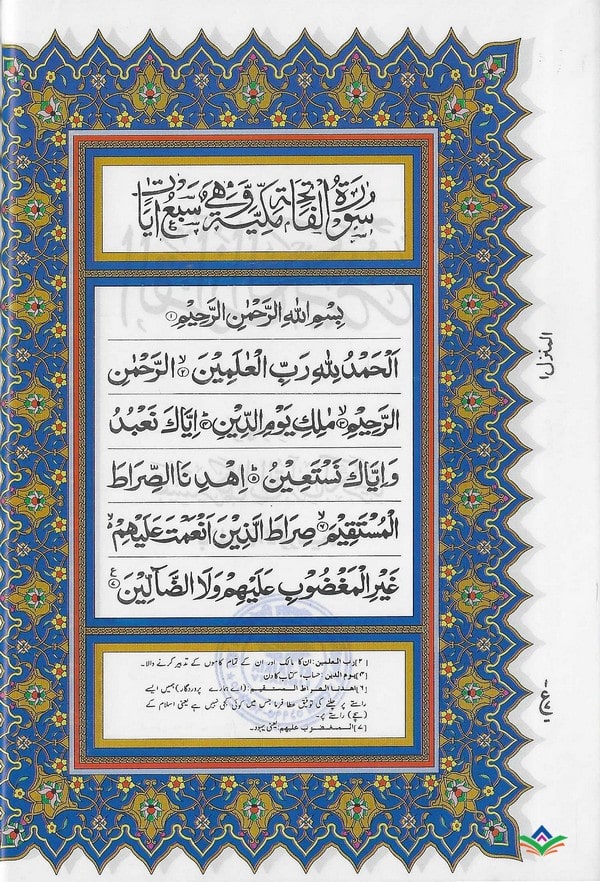 سُوْرَةُ الْفَاتِحَةِ مَكِّيَّةٌ وَّهِيَ سَبْعُ اٰيَاتٍ
بِسْمِ اللهِ الرَّحْمٰنِ الرَّحِيْمِ ۝۱
اَلْحَمْدُ لِلّٰهِ رَبِّ الْعٰلَمِيْنَ ۝۲ الرَّحْمٰنِ
الرَّحِيْمِ ۝۳ مٰلِكِ يَوْمِ الدِّيْنِ ۝۴ اِيَّاكَ نَعْبُدُ
وَاِيَّاكَ نَسْتَعِيْنُ ۝۵ اِهْدِنَا الصِّرَاطَ
الْمُسْتَقِيْمَ ۝۶ صِرَاطَ الَّذِيْنَ اَنْعَمْتَ عَلَيْهِمْ
غَيْرِ الْمَغْضُوْبِ عَلَيْهِمْ وَلَا الضَّآلِّيْنَ ۝۷
[۲] رب العلمین: ان کا مالک اور ان کے تمام کاموں کے تدبیر کرنے والا۔
[۳] یوم الدین: حساب، کتاب کا دن
[۶] اهدنا الصراط المستقیم: (اے ہمارے پروردگار) ہمیں ایسے
راستے پر چلنے کی توفیق عطا فرما جس میں کوئی کجی نہیں ہے یعنی اسلام کے
(سچے) راستے پر۔
[۷] المغضوب علیهم: یعنی یہود۔
المنزل ۱